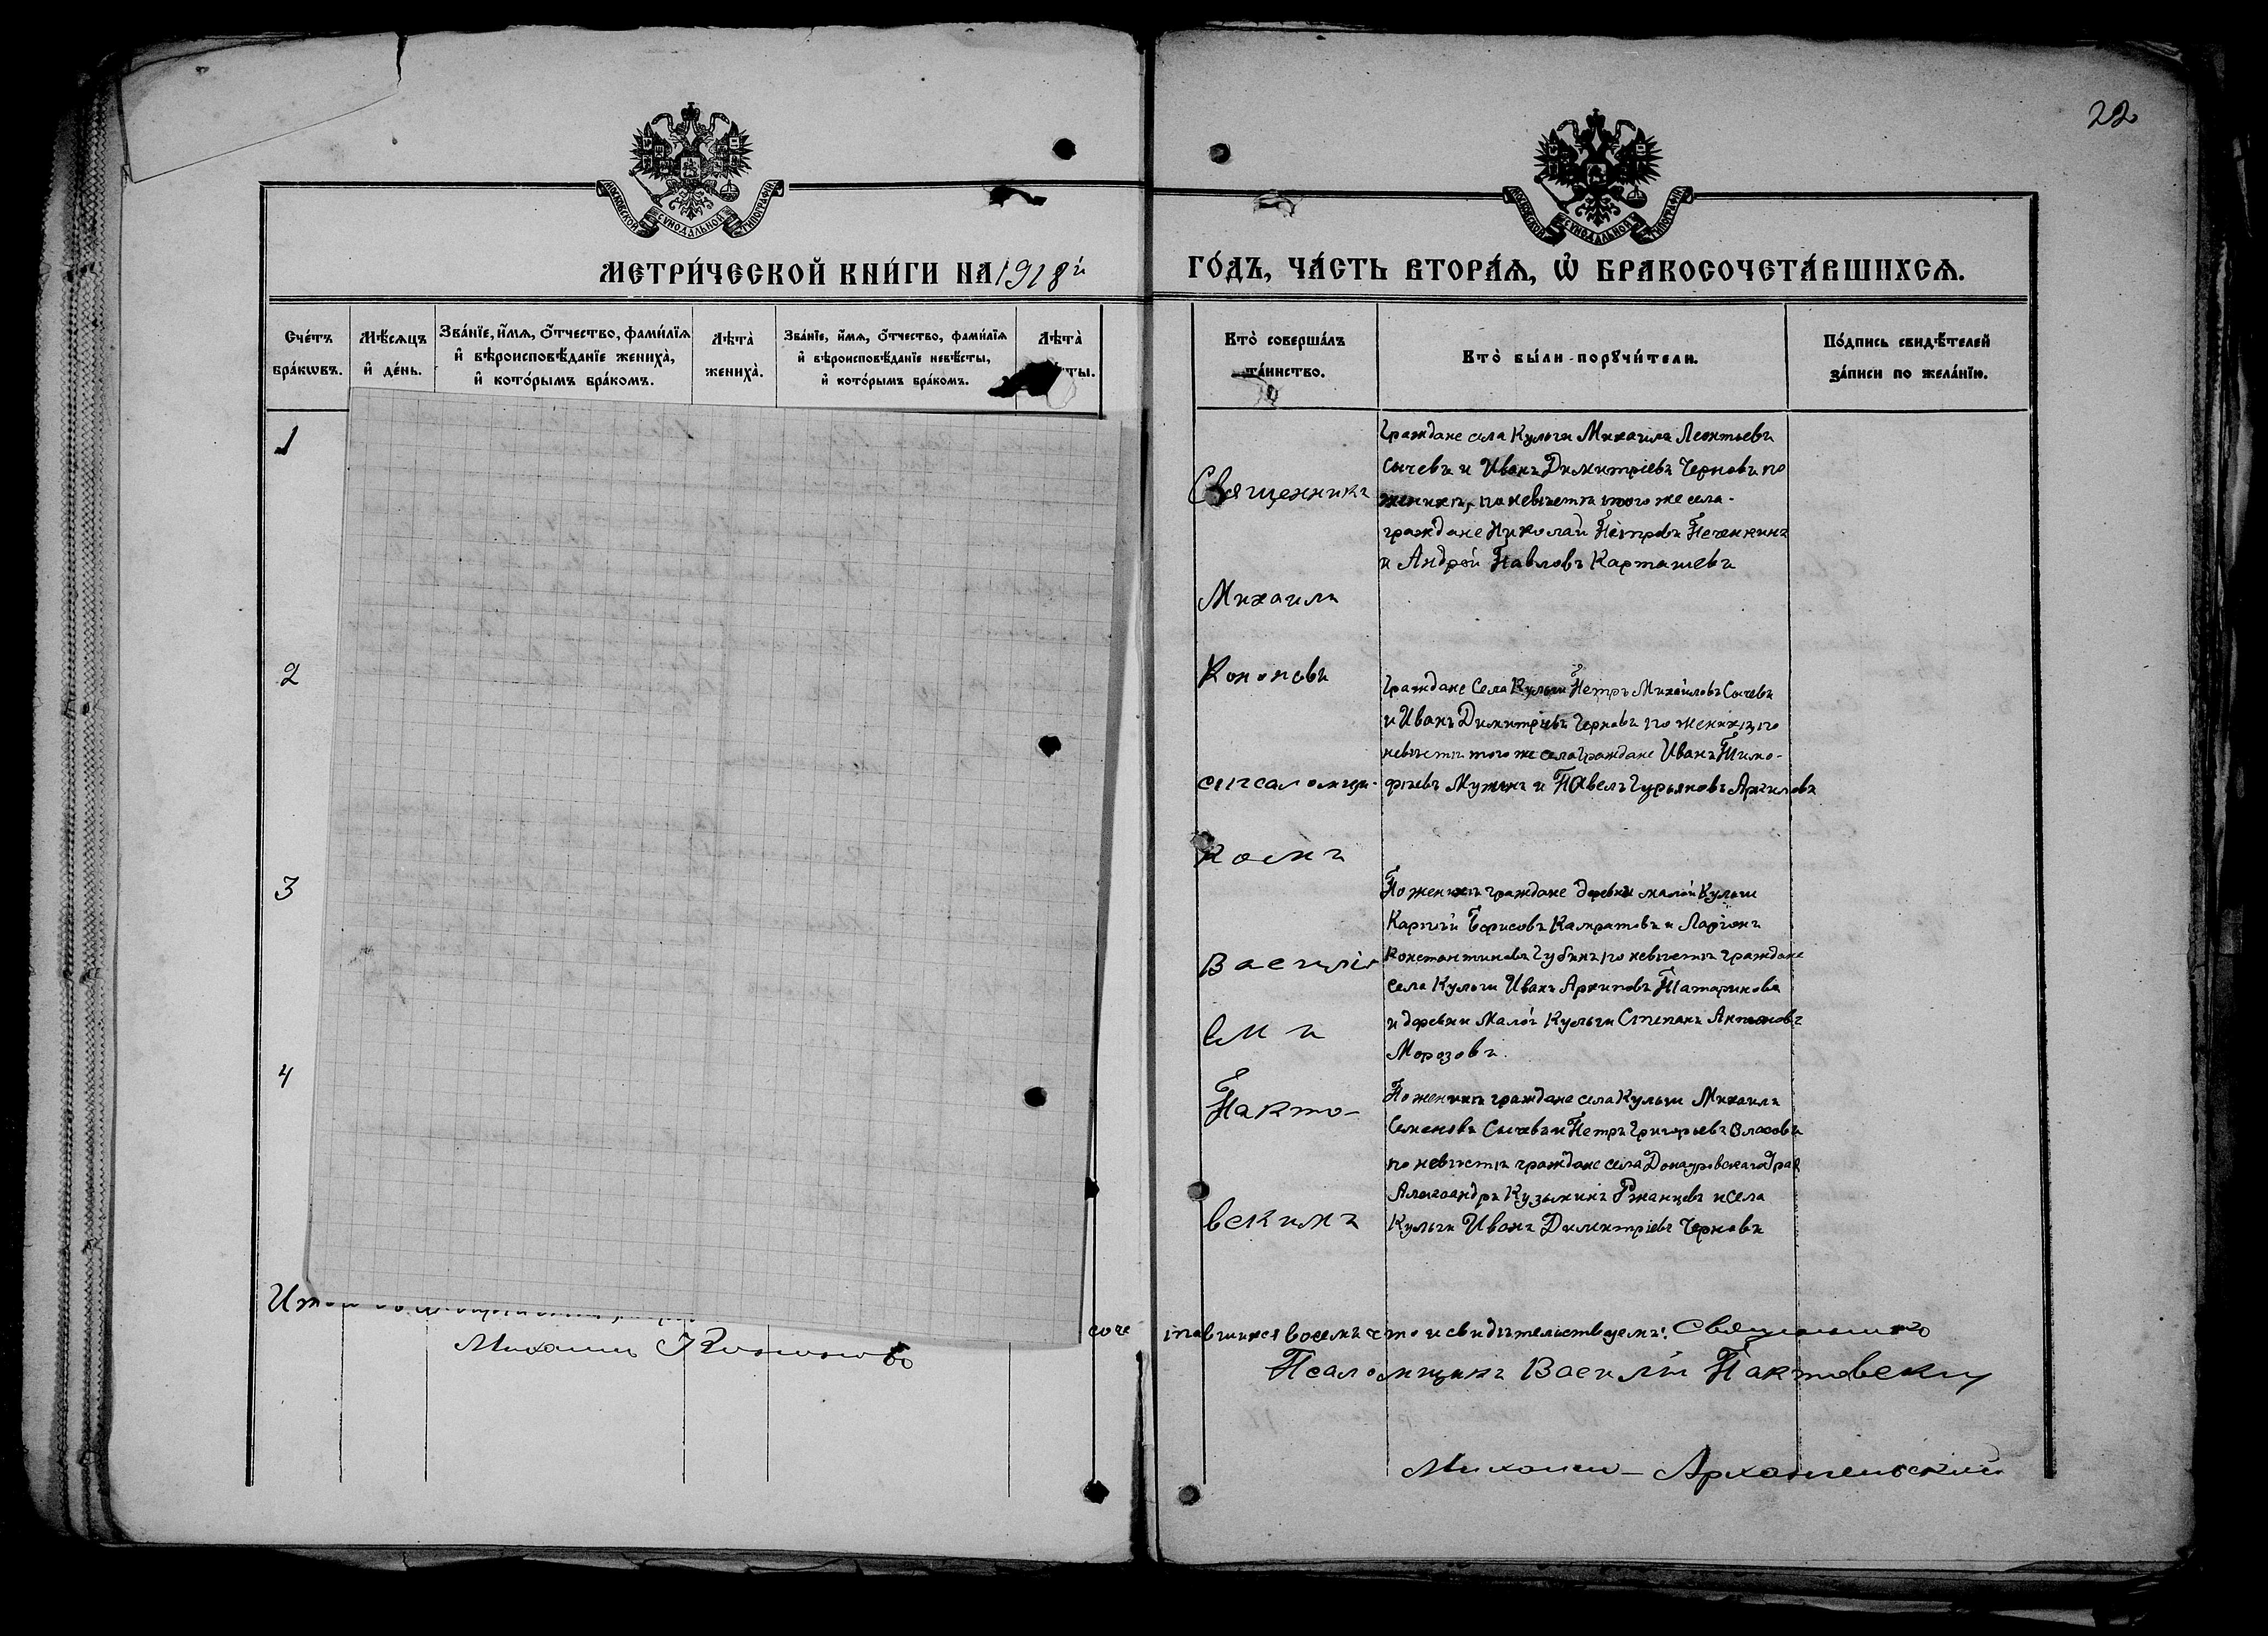 22
МОСКОВСКОЙ СѴНОДАЛЬНОЙ ТИПОГРАФІИ
МОСКОВСКОЙ СѴНОДАЛЬНОЙ ТИПОГРАФІИ
МЕТРИ́ЧЕСКОЙ КНИ́ГИ НА 1918й
ГО́ДЪ, ЧА́СТЬ ВТОРА́Ѧ, Ѽ БРАКОСОЧЕТА́ВШИХСѦ.
Сче́тъ бра́кѡвъ.
Мѣ́сѧцъ и҆ де́нь.
Зва́нїе, и҆́мѧ, о҆́тчество, фами́лїѧ
и҆ вѣроисповѣ́данїе женихà,
и҆ кото́рымъ бра́комъ.
Лѣтà женихà.
Зва́нїе, и҆́мѧ, о҆́тчество, фами́лїѧ
и҆ вѣроисповѣ́данїе невѣ́сты,
и҆ кото́рымъ бра́комъ.
Лѣтà
ты.
Кто̀ соверша́лъ
та́инство.
Кто̀ бы́ли порꙋчи́тели.
По́дпись свидѣ́телей
за́писи по жела́нїю.
1
2
3
4
Священникъ
Михаилъ
Кононовъ
съ псаломщи-
комъ
Василіемъ
Пакто-
вскимъ
Граждане села Кульги Михаилъ Леонтьевъ
Сычевъ и Иванъ Димитріевъ Черновъ по
женихѣ, по невѣстѣ того же села
граждане Николай Петровъ Печенкинъ
и Андрей Павловъ Карташевъ
Граждане Села Кульги Петръ Михайловъ Сычевъ
и Иванъ Димитріевъ Черновъ по женихѣ, по
невѣстѣ того же села граждане Иванъ Тимо-
фѣевъ и Павелъ Гурьяновъ
По женихѣ граждане деревни малой Кульги
Борисовъ и Ларіонъ
Константиновъ Губинъ по невѣстѣ граждане
села Кульги Иванъ Архиповъ Татариновъ
и деревни Малой Кульги Степанъ Антоновъ
Морозовъ.
По женихѣ граждане села Кульги Михаилъ
Семеновъ Сычевъ и Петръ Григорьевъ Власовъ
по невѣстѣ граждане села
Александръ Кузьминъ Ржанцевъ и села
Кульги Иванъ Димитріевъ Черновъ
соче тавшихся восемь что и свидѣтельствуемъ: Священникъ
Михаилъ Кононовъ
Псаломщикъ Василій Пактовскій
Михаило-Архангельской